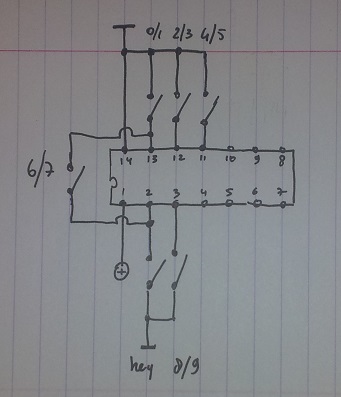 0/1 2/3 4/5
14 13 12 11 10 9 8
6/7
1 2 3 4 5 6 7
+
hey 8/9